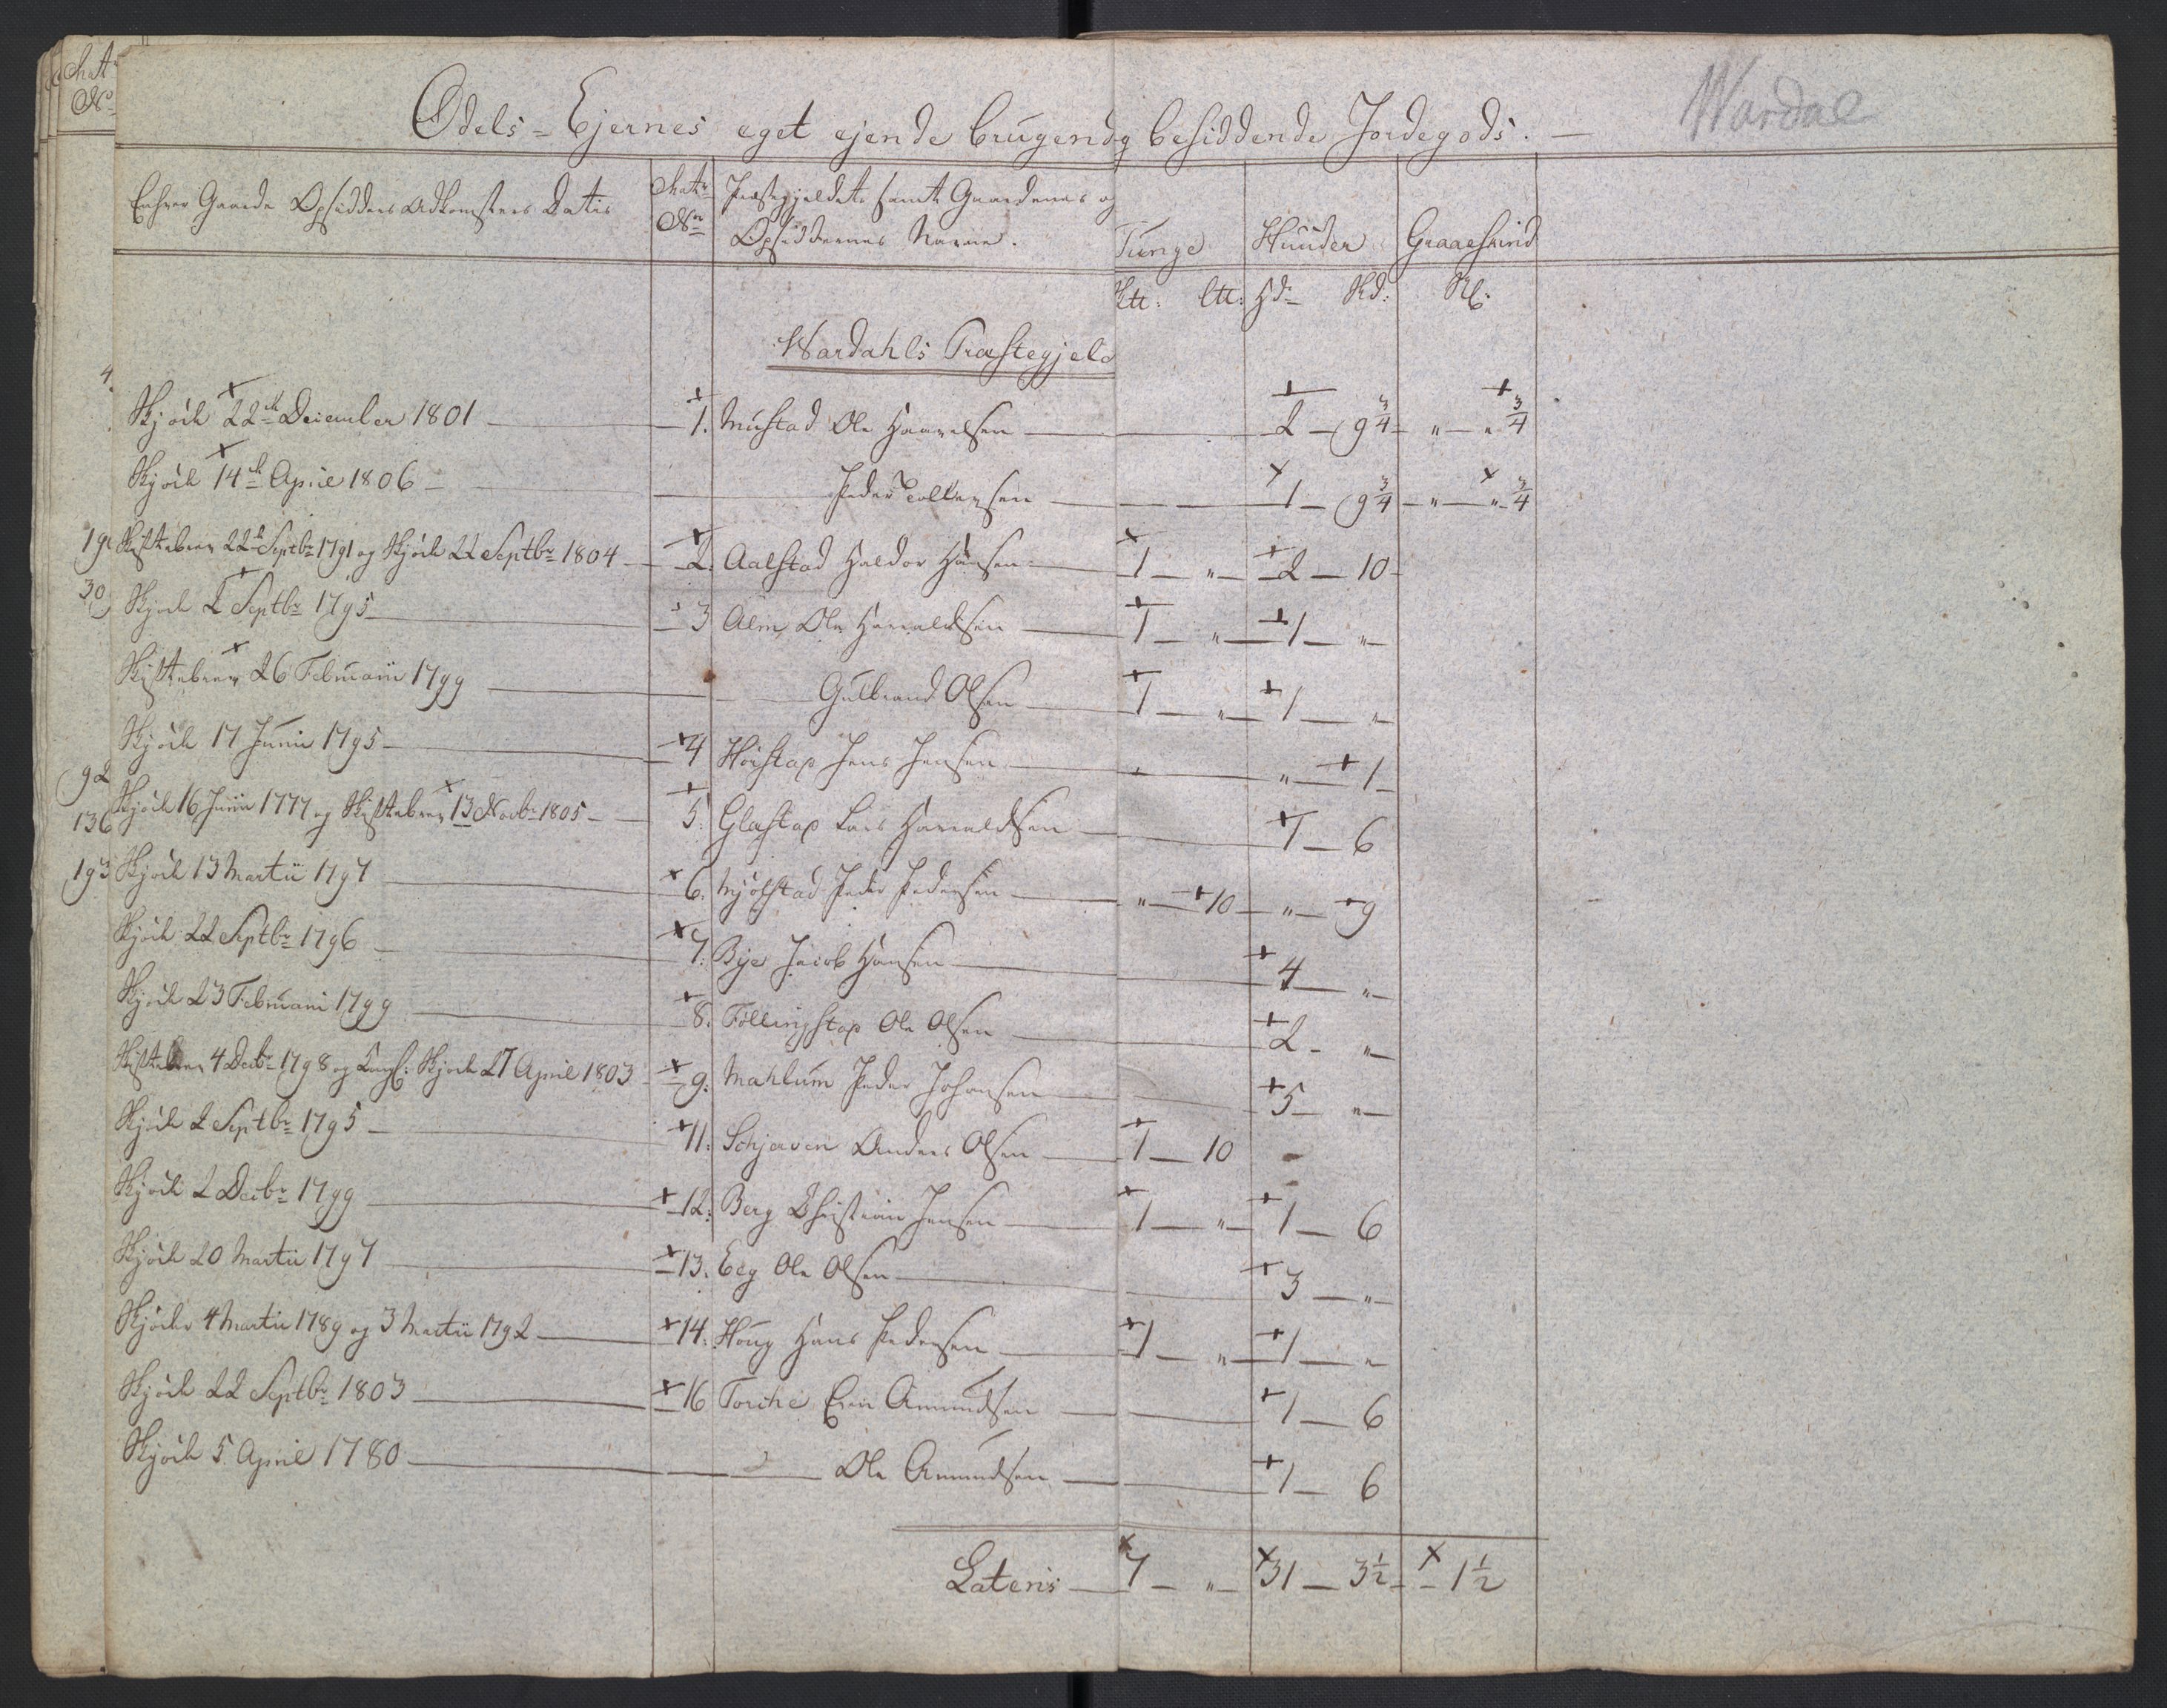 Wardal
Odels-Ejernes eget ejende brugende og besiddende Jordegods. —
Matr: No
Enhver Gaards Opsidders Adkomsters Datis
Matr: No
Præstegjeldets samt Gaardenes og
Opsiddernes Navne.
Tunge Huuder Graaeskind
Hd: Skd:
Wardahls Præstegjeld
Skjöde 22de December 1801 — 1. Mustad Ole Haavelsen — 2 — 9 3/4 — " — " 3/4
Skjöde 14de April 1806 — Peder Tollersen — 1 — 9 3/4 — " — " 3/4
Skiftebrev 22de Septbr 1791 og Skjöde 22 Septbr 1804 — 2. Aalstad Haldor Hansen — 1 — " — 2 — 10
Skjöde 2 Septbr 1795 — 3 Alm Ole Haraldsen — 1 — " — 1 — "
Skiftebrev 26 Februarii 1799 — Gulbrand Olsen — 1 — " — 1 — "
Skjöde 17 Junii 1795 — 4 Hörstap Jens Jensen — " — 1
Skjöde 16 Junii 1777 og Skiftebrev 13 Novbr 1805 — 5. Glæstap Lars Haraldsen — 1 — 6
Skjöde 13 Martii 1797 — 6. Mjölstad Peder Pedersen — " — 10 — " — 9
Skjöde 22 Septbr 1796 — 7. Bye Jacob Hansen — 4 — "
Skjöde 23 Februarii 1799 — 8. Föllingstap Ole Olsen — 2 — "
Skiftebrev 4 Decbr 1798 og Skjöde 27 April 1803 — 9. Mahlum Peder Johansen — 5 — "
Skjöde 2 Septbr 1795 — 11. Schjeven Anders Olsen — 1 — 10
Skjöde 2 Decbr 1799 — 12. Berg Christian Jensen — 1 — " — 1 — 6
Skjöde 20 Martii 1797 — 13. Eeg Ole Olsen — 3 — "
Skjöder 4 Martii 1789 og 3 Martii 1792 — 14. Houg Hans Pedersen — 1 — " — 1 — "
Skjöde 22 Septbr 1803 — 16 Torche Even Amundsen — 1 — 6
Skjöde 5 April 1780 — Ole Amundsen — 1 — 6
Lateris — 7 — " — 31 — 3 1/2 — 1 1/2